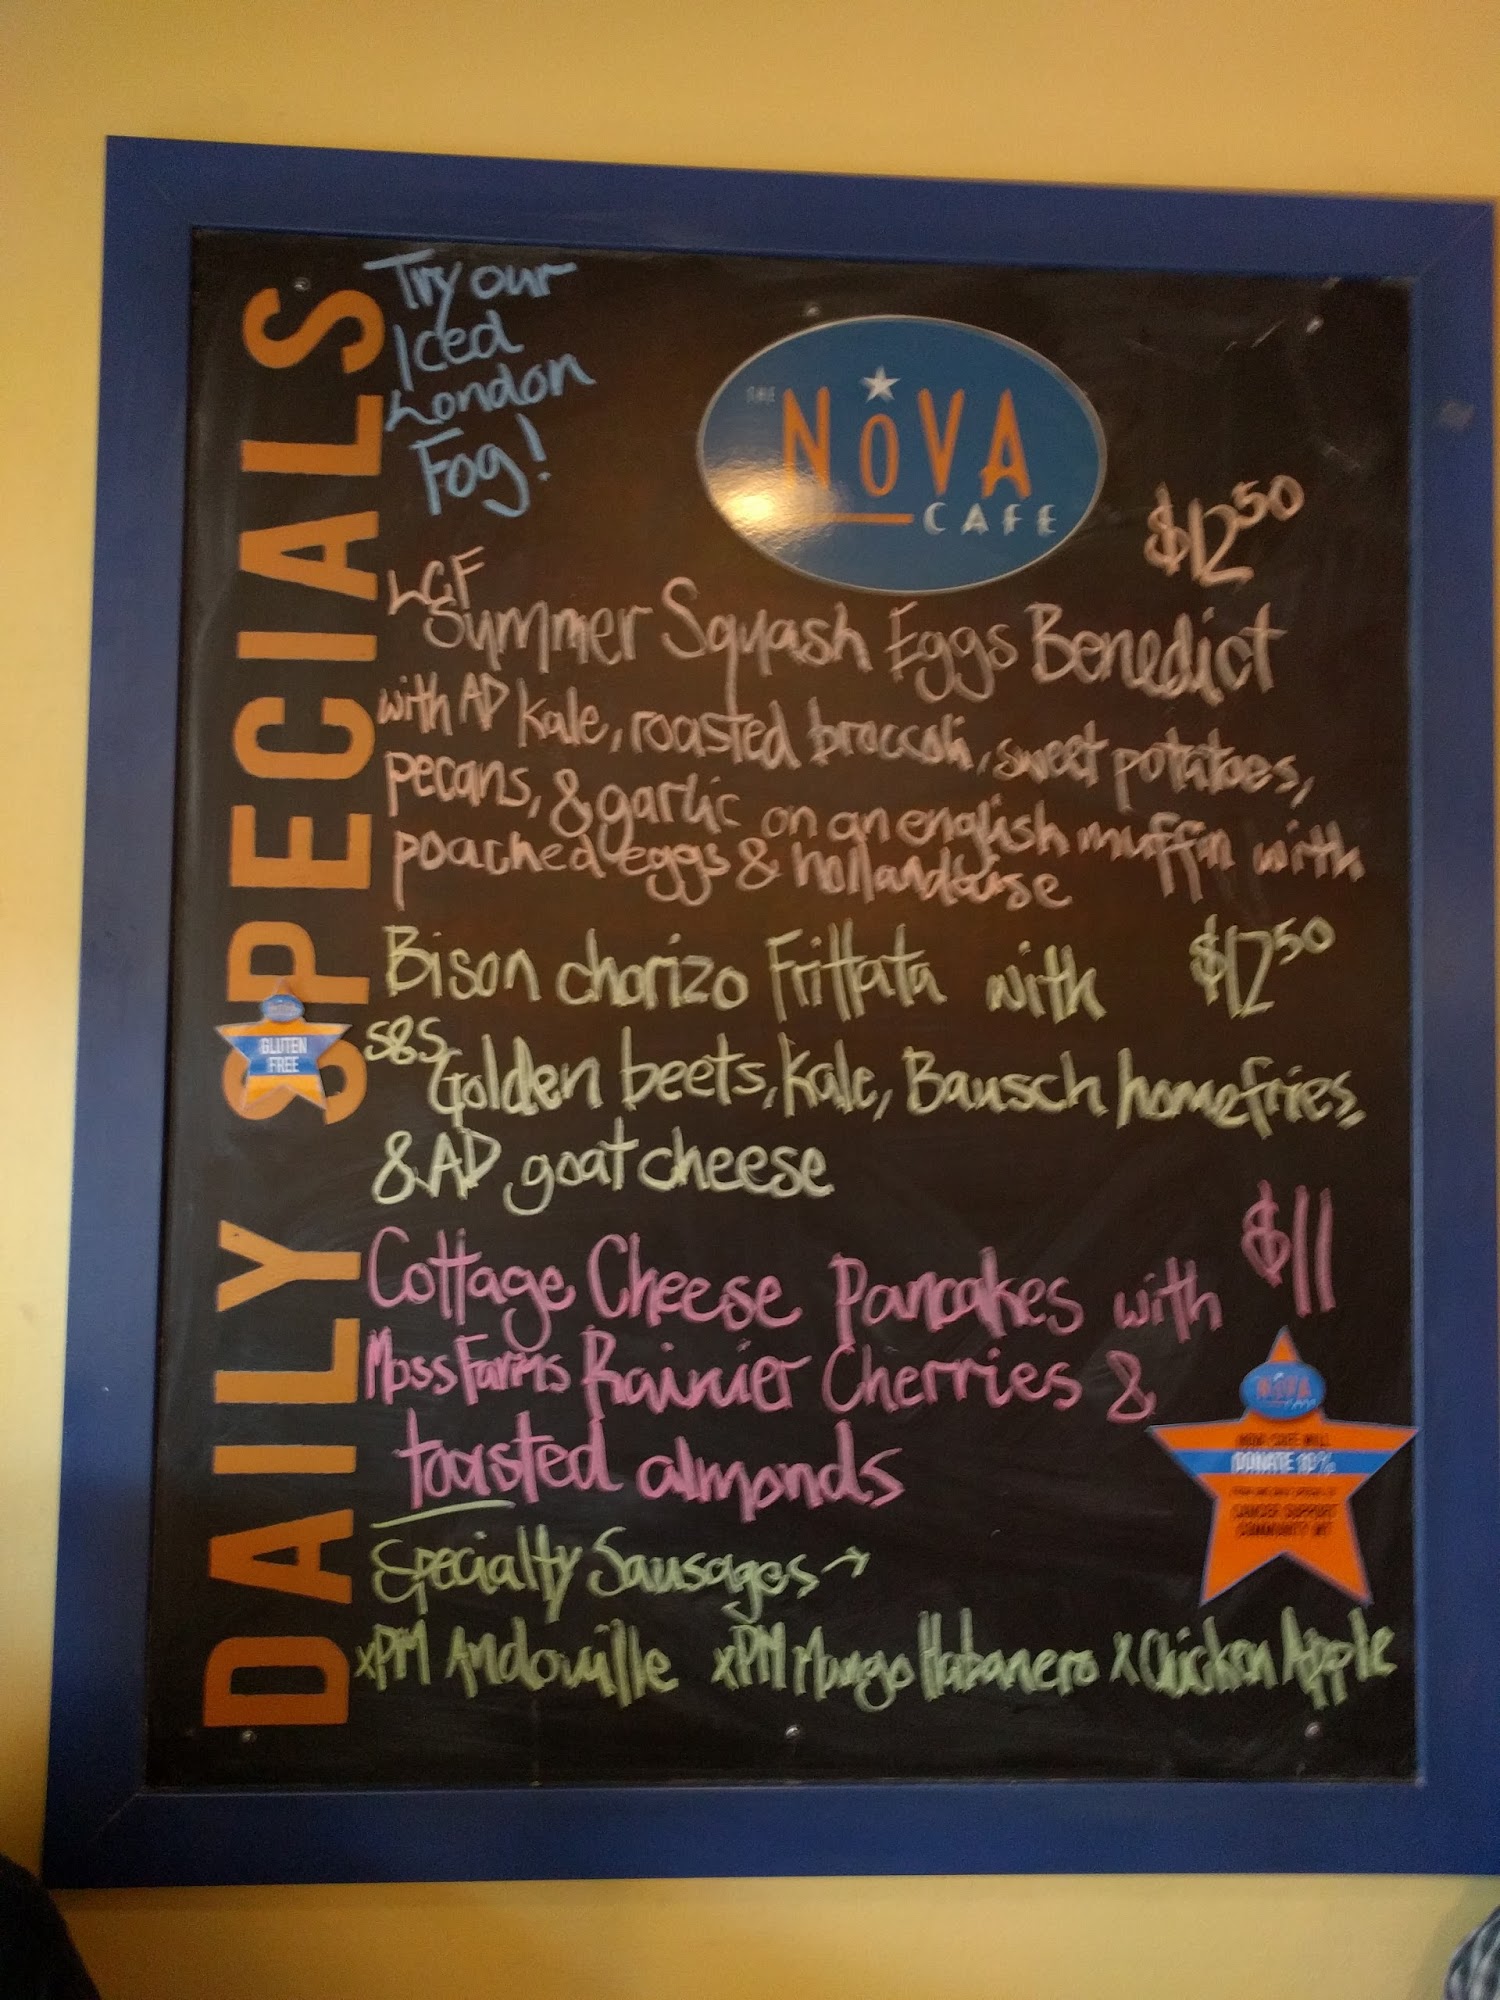 DAILY SPECIALS
Try our
Iced
London
Fog!
THE
NOVA
CAFE
$12 50
LCF
Summer Squash Eggs Benedict
with AD Kale, roasted broccoli, sweet potatoes,
pecans, & garlic on an english muffin with
poached eggs & hollandaise
Bison chorizo Frittata with $12 50
S&S
Golden beets, Kale, Bausch homefries,
& AD goat cheese
GLUTEN
FREE
Cottage Cheese Pancakes with $11
Moss Farms Rainier Cherries &
toasted almonds
NOVA
NOVA CAFE WILL
DONATE 10%
CANCER SUPPORT
COMMUNITY MT
Specialty Sausages →
xPM Andouille xPM Mango Habanero x Chicken Apple